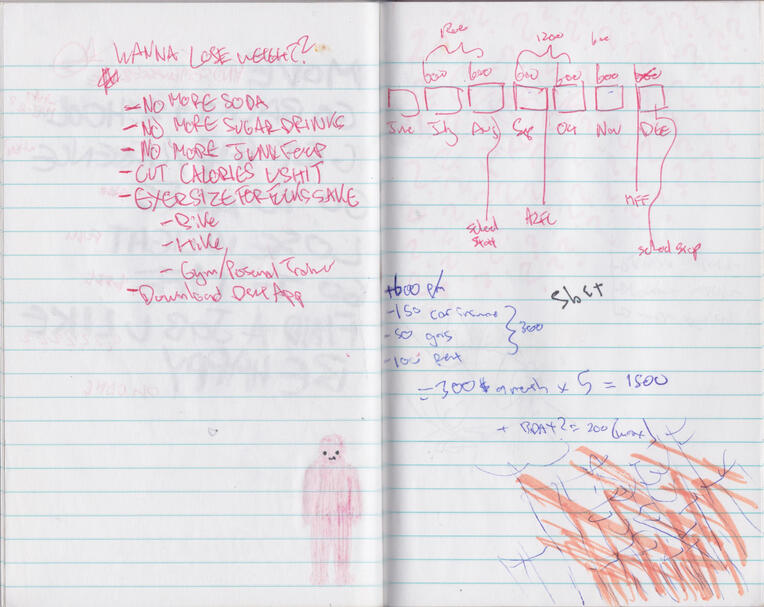 WANNA LOSE WEIGHT?
- NO MORE SODA
- NO MORE SUGAR DRINKS
- NO MORE JUNK FOOD
- CUT CALORIES N SHIT
- EXERSIZE FOR FUCKS SAKE
- Bike
- Hike
- Gym/Posenal Trainer
- Download Diet App
1200 600
600 600 600 600 600 600
June July Aug Sep Oct Nov Dec
school start
MFF
school stop
+600 pm
-150 car insurance
-50 gas
-100 rent
} 300
= 300$ a month x 5 = 1500
+ BDAY? = 200 (max)